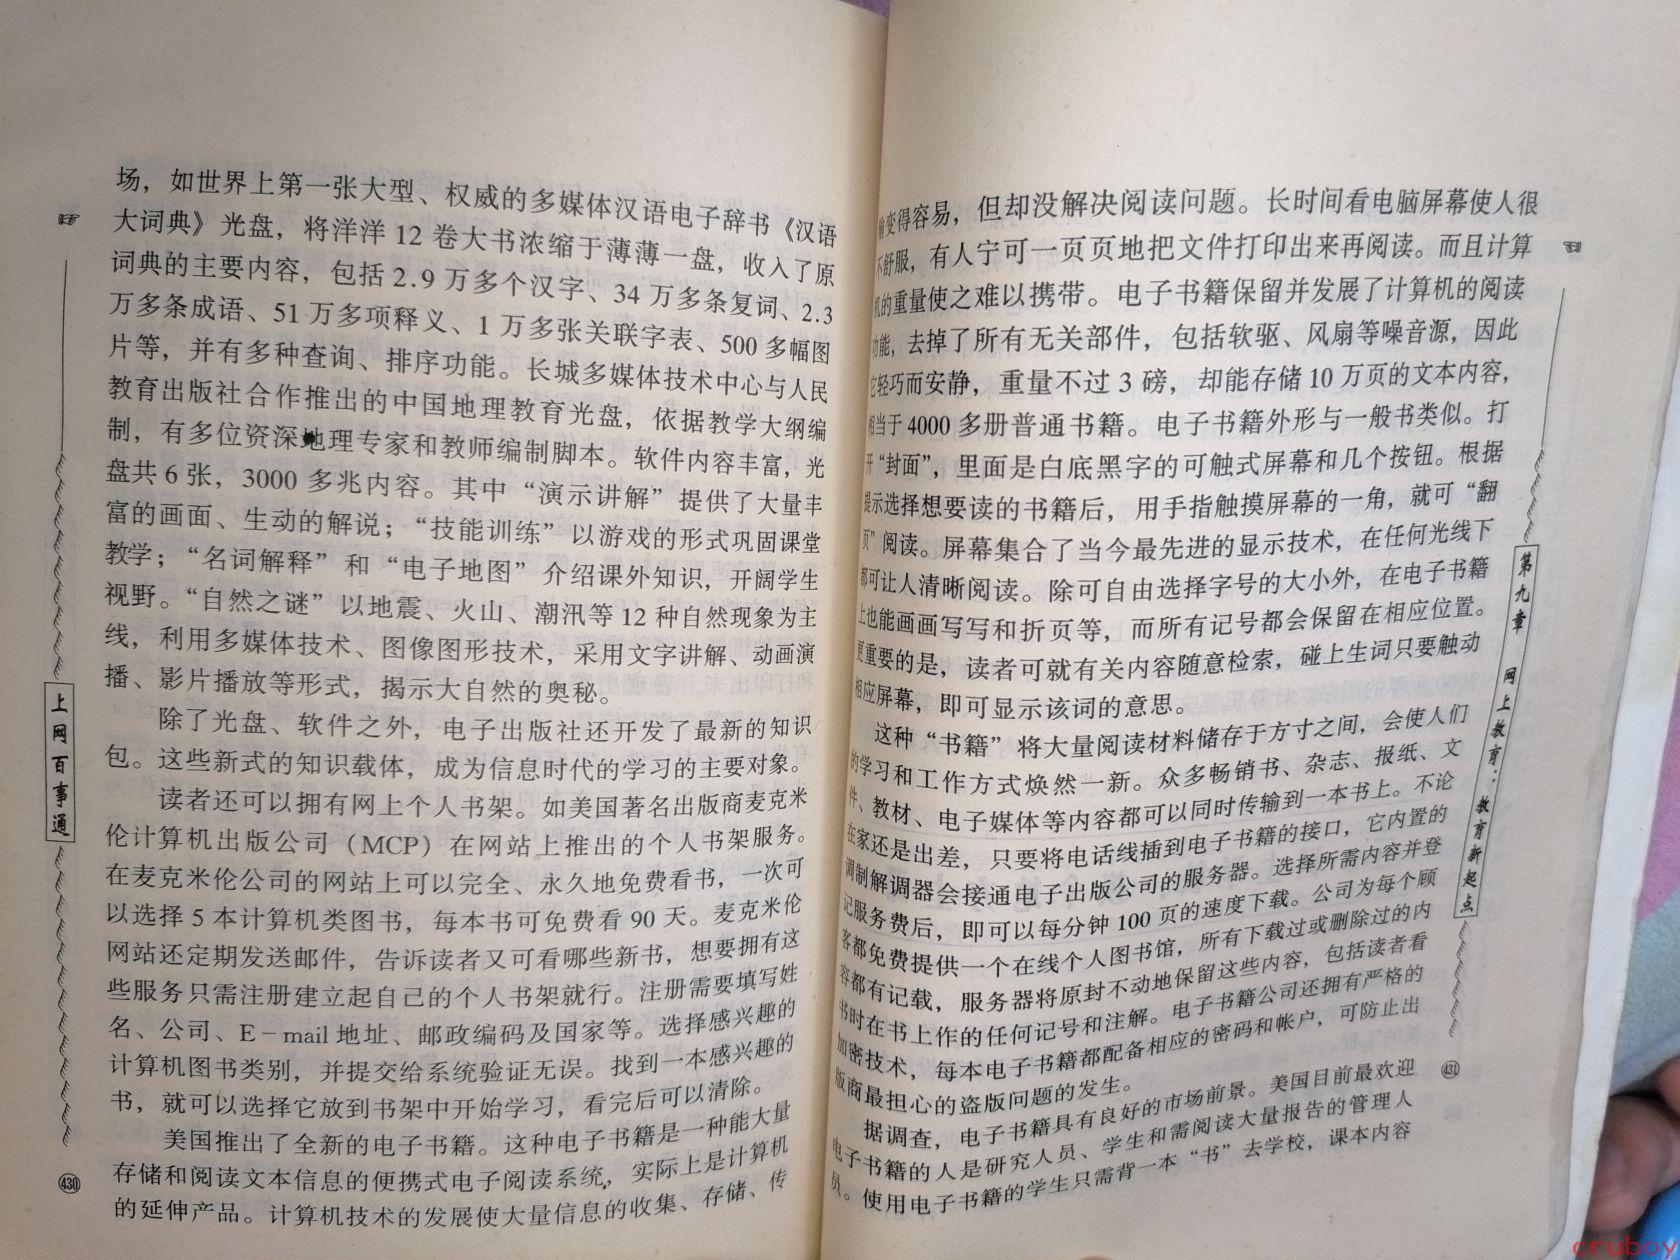 场，如世界上第一张大型、权威的多媒体汉语电子辞书《汉语
大词典》光盘，将洋洋 12 卷大书浓缩于薄薄一盘，收入了原
词典的主要内容，包括 2.9 万多个汉字、34 万多条复词、2.3
万多条成语、51 万多项释义、1 万多张关联字表、500 多幅图
片等，并有多种查询、排序功能。长城多媒体技术中心与人民
教育出版社合作推出的中国地理教育光盘，依据教学大纲编
制，有多位资深地理专家和教师编制脚本。软件内容丰富，光
盘共 6 张，3000 多兆内容。其中“演示讲解”提供了大量丰
富的画面、生动的解说；“技能训练”以游戏的形式巩固课堂
教学；“名词解释”和“电子地图”介绍课外知识，开阔学生
视野。“自然之谜”以地震、火山、潮汛等 12 种自然现象为主
线，利用多媒体技术、图像图形技术，采用文字讲解、动画演
播、影片播放等形式，揭示大自然的奥秘。
除了光盘、软件之外，电子出版社还开发了最新的知识
包。这些新式的知识载体，成为信息时代的学习的主要对象。
读者还可以拥有网上个人书架。如美国著名出版商麦克米
伦计算机出版公司（MCP）在网站上推出的个人书架服务。
在麦克米伦公司的网站上可以完全、永久地免费看书，一次可
以选择 5 本计算机类图书，每本书可免费看 90 天。麦克米伦
网站还定期发送邮件，告诉读者又可看哪些新书，想要拥有这
些服务只需注册建立起自己的个人书架就行。注册需要填写姓
名、公司、E－mail 地址、邮政编码及国家等。选择感兴趣的
计算机图书类别，并提交给系统验证无误。找到一本感兴趣的
书，就可以选择它放到书架中开始学习，看完后可以清除。
美国推出了全新的电子书籍。这种电子书籍是一种能大量
存储和阅读文本信息的便携式电子阅读系统，实际上是计算机
的延伸产品。计算机技术的发展使大量信息的收集、存储、传
上网百事通
430
输变得容易，但却没解决阅读问题。长时间看电脑屏幕使人很
不舒服，有人宁可一页页地把文件打印出来再阅读。而且计算
机的重量使之难以携带。电子书籍保留并发展了计算机的阅读
功能，去掉了所有无关部件，包括软驱、风扇等噪音源，因此
它轻巧而安静，重量不过 3 磅，却能存储 10 万页的文本内容，
相当于 4000 多册普通书籍。电子书籍外形与一般书类似。打
开“封面”，里面是白底黑字的可触式屏幕和几个按钮。根据
提示选择想要读的书籍后，用手指触摸屏幕的一角，就可“翻
页”阅读。屏幕集合了当今最先进的显示技术，在任何光线下
都可让人清晰阅读。除可自由选择字号的大小外，在电子书籍
上也能画画写写和折页等，而所有记号都会保留在相应位置。
更重要的是，读者可就有关内容随意检索，碰上生词只要触动
相应屏幕，即可显示该词的意思。
这种“书籍”将大量阅读材料储存于方寸之间，会使人们
的学习和工作方式焕然一新。众多畅销书、杂志、报纸、文
件、教材、电子媒体等内容都可以同时传输到一本书上。不论
在家还是出差，只要将电话线插到电子书籍的接口，它内置的
调制解调器会接通电子出版公司的服务器。选择所需内容并登
记服务费后，即可以每分钟 100 页的速度下载。公司为每个顾
客都免费提供一个在线个人图书馆，所有下载过或删除过的内
容都有记载，服务器将原封不动地保留这些内容，包括读者看
书时在书上作的任何记号和注解。电子书籍公司还拥有严格的
加密技术，每本电子书籍都配备相应的密码和帐户，可防止出
版商最担心的盗版问题的发生。
据调查，电子书籍具有良好的市场前景。美国目前最欢迎
电子书籍的人是研究人员、学生和需阅读大量报告的管理人
员。使用电子书籍的学生只需背一本“书”去学校，课本内容
第九章 网上教育：教育新起点
431
cruboy